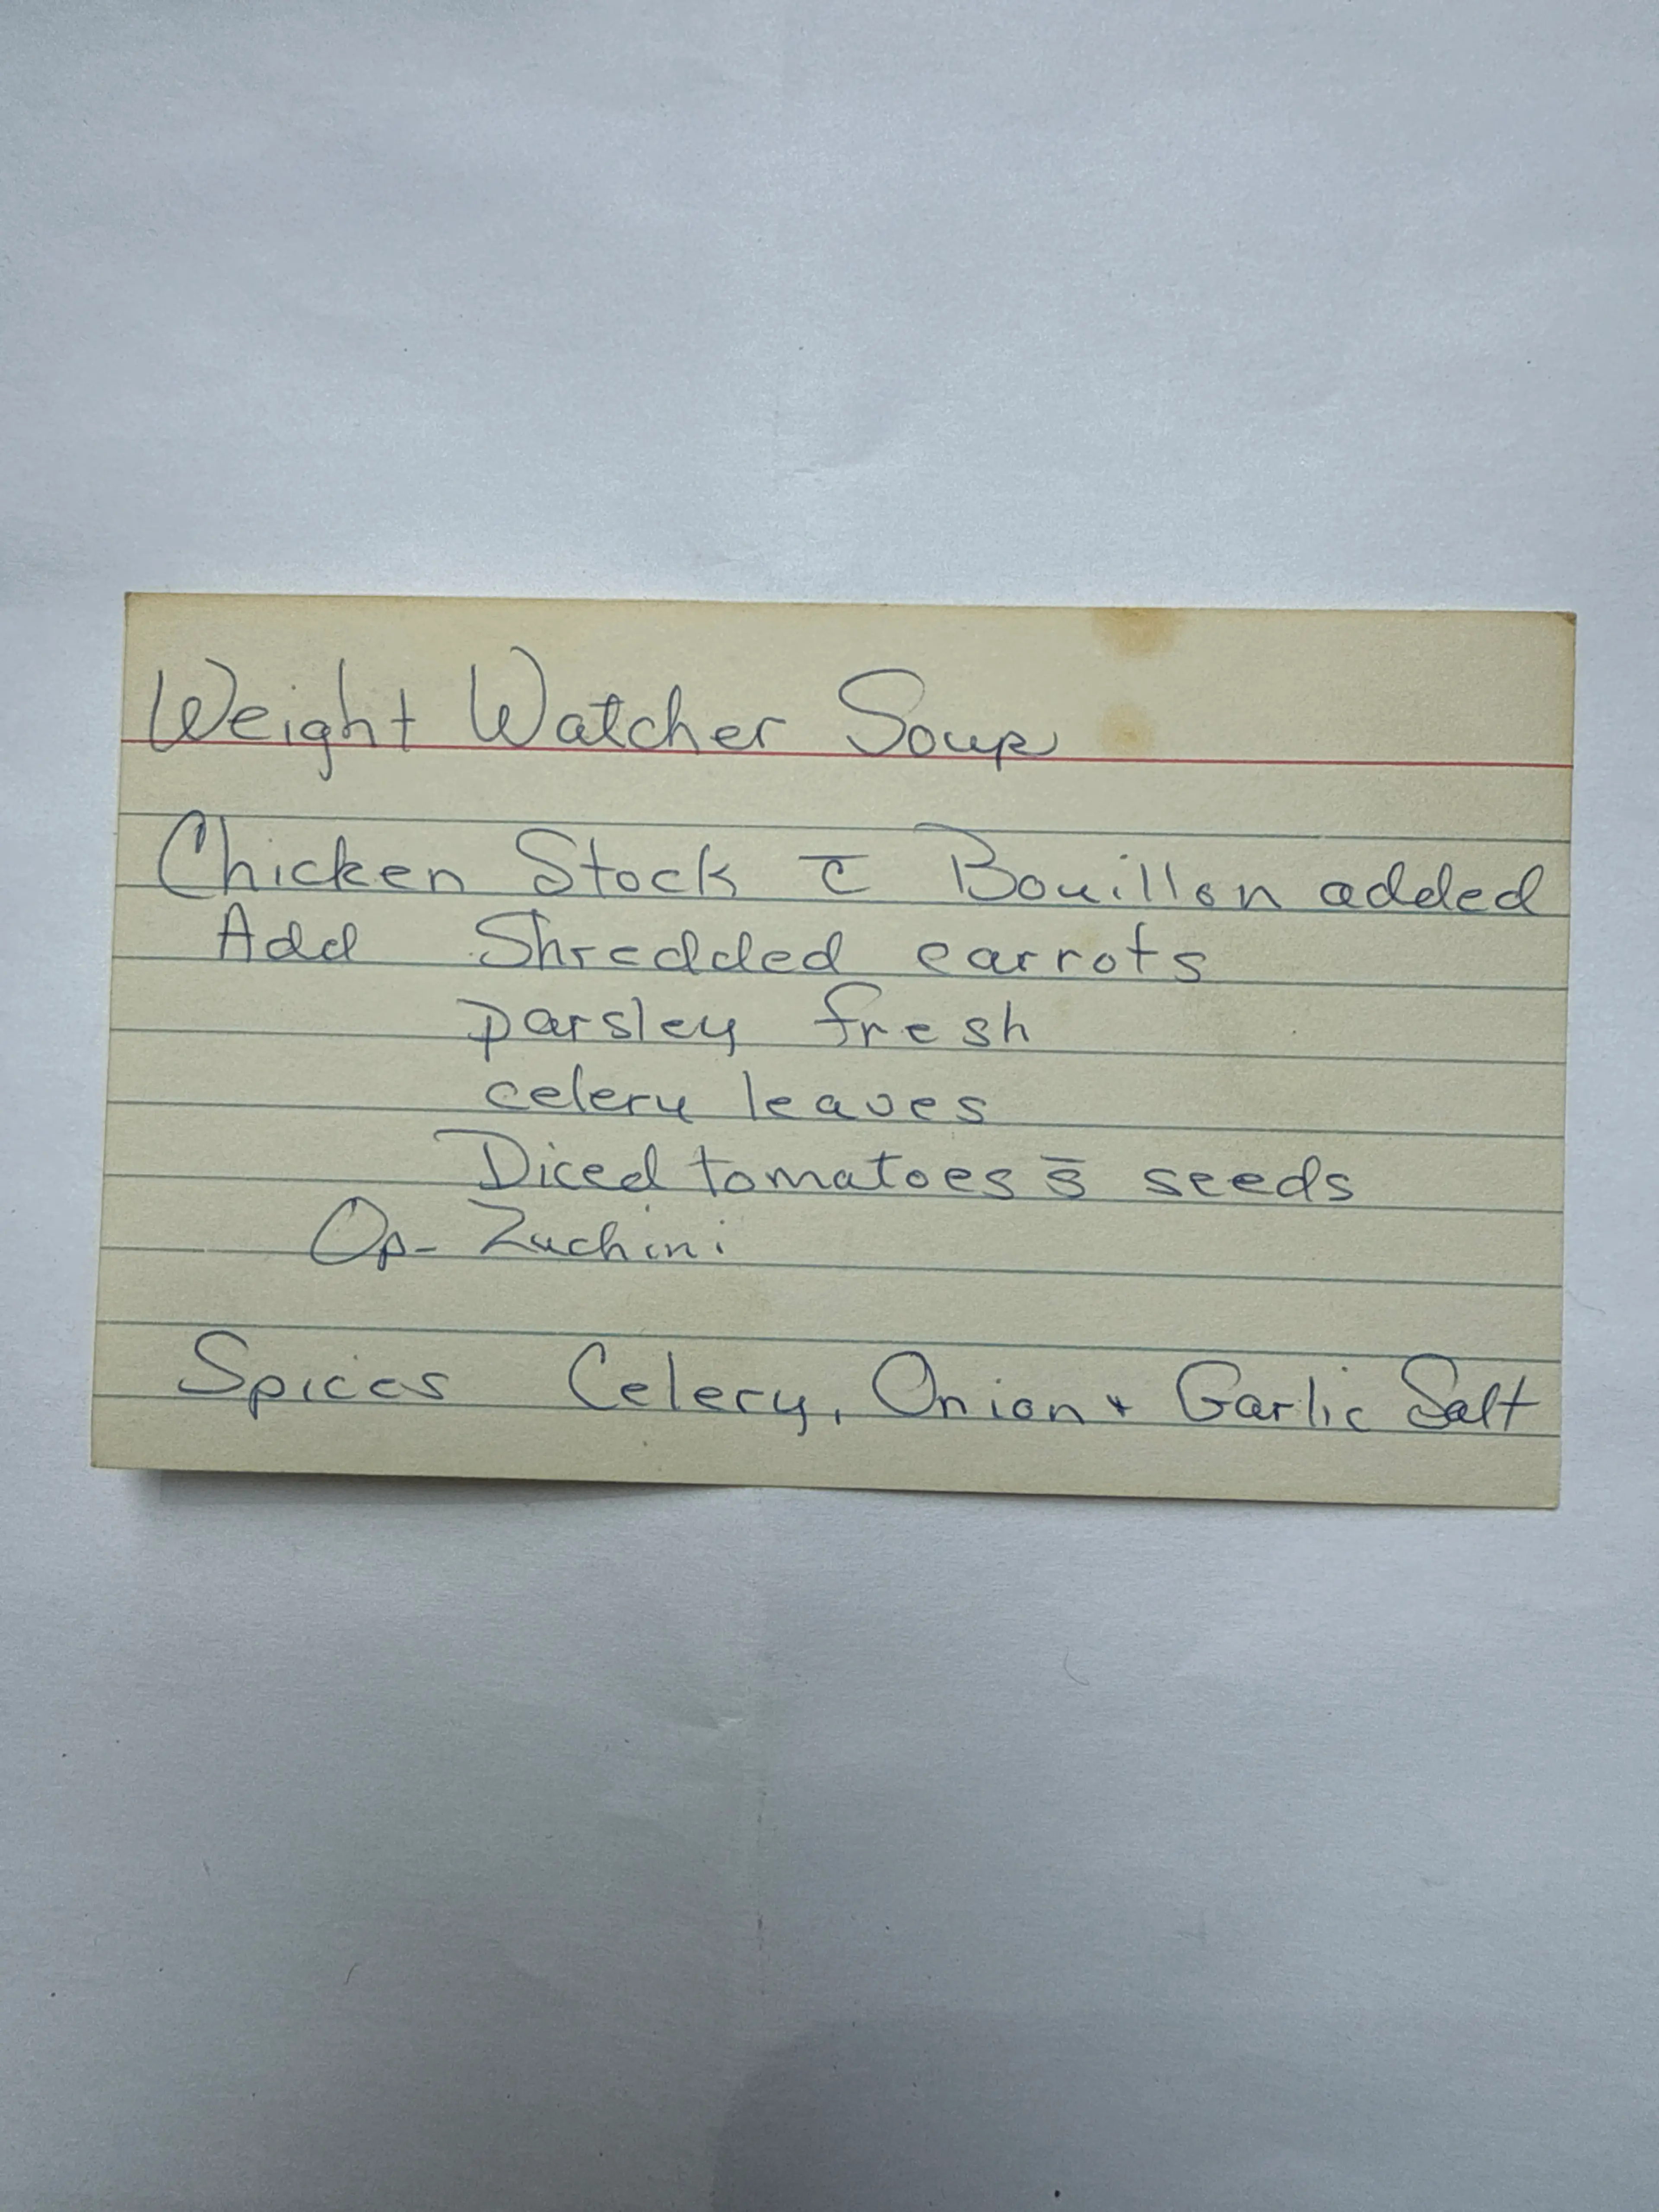 Weight Watcher Soup
Chicken Stock c̄ Bouillon added
Add Shredded carrots
parsley fresh
celery leaves
Diced tomatoes s̄ seeds
Op- Zuchini
Spices Celery, Onion + Garlic Salt